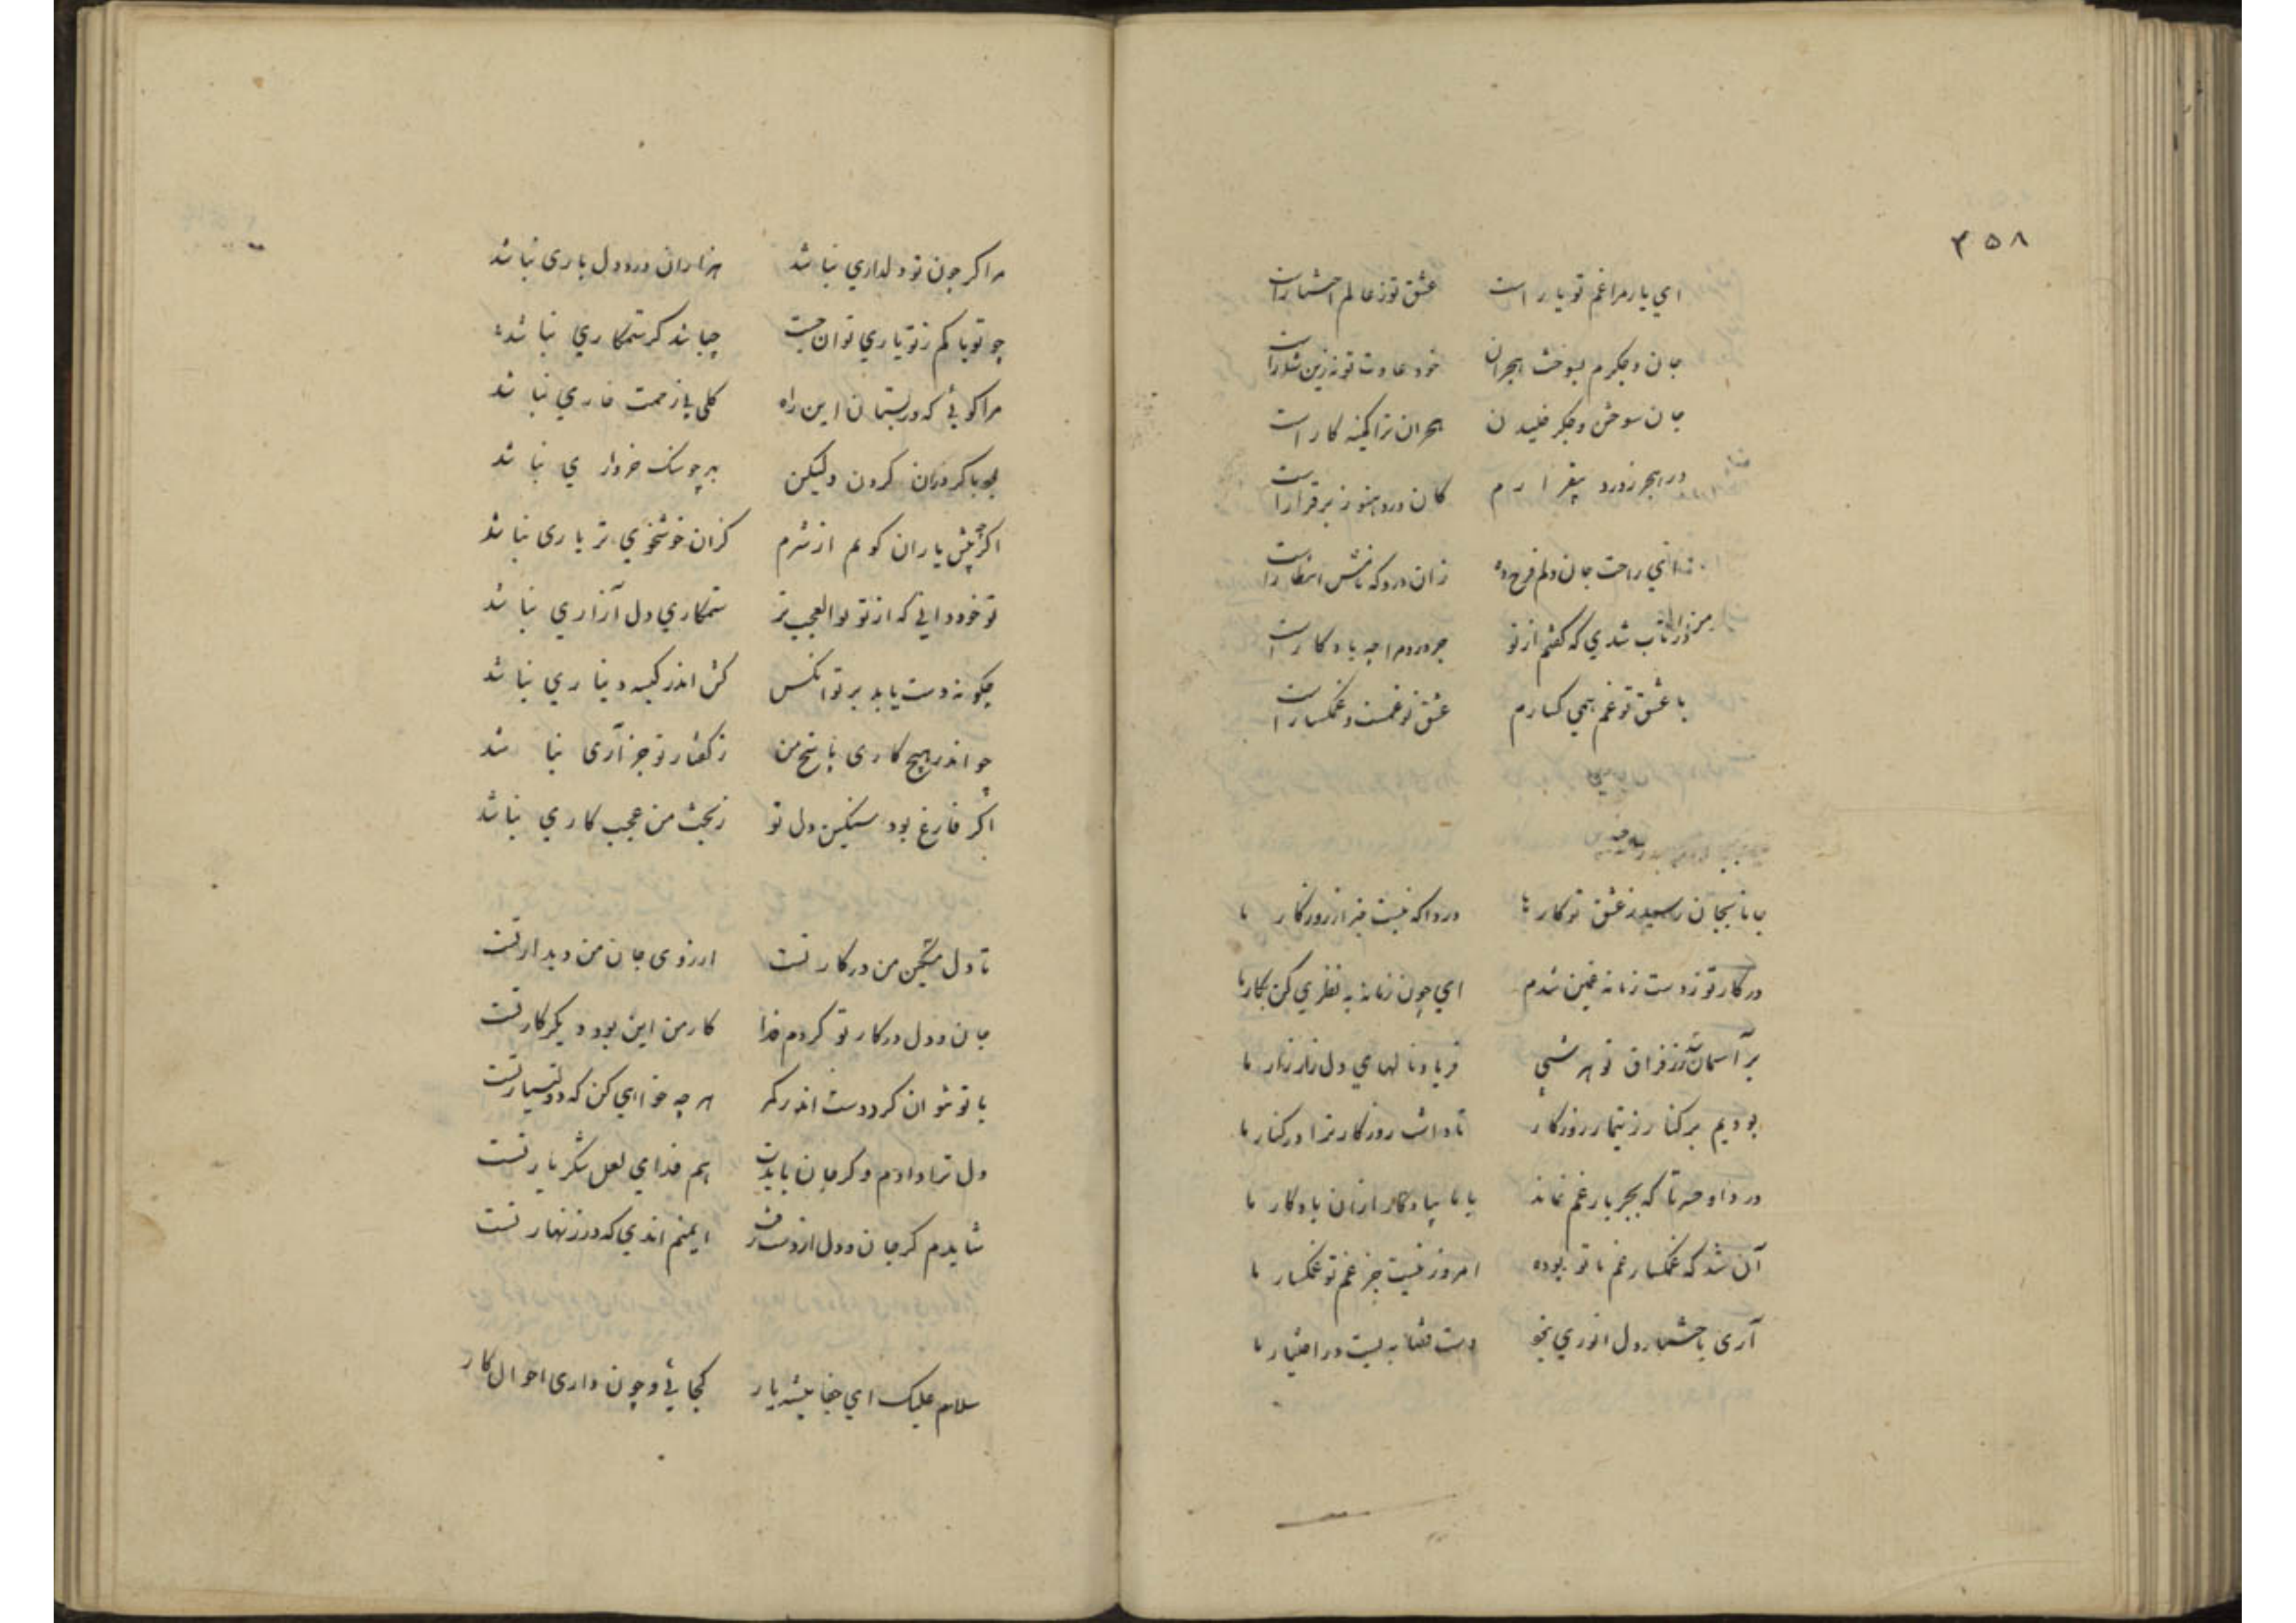 ۳۵۸
ای یار مرا غم تو یار است عشق تو ز عالم اختیار است
جان و جگرم بسوخت هجران خود عادت تو نه زین شمار است
جان سوختن و جگر خلیدن هجران ترا کمینه کار است
در هجر ز درد بیقرارم کان درد هنوز برقرار است
ای راحت جان دلم فرح ده زان درد که نامش انتظار است
در تاب شدی که گفتم از تو جز درد مرا چه یادگار است
با عشق تو غم همی کسارم عشق تو غمست و غمکسار است
جانا بجان رسید ز عشق تو کار ما دردا که نیست خبر از روزکار ما
در کار تو ز دست زمانه غمین شدم ای چون زمانه بد نظری کن بکار ما
بر آسمان رسد ز فراق تو هر شبی فریاد نالهای دل زار زار ما
بودیم بر کنار ز تیمار روزکار تا داشت روزکار ترا در کنار ما
دردا و حسرتا که بجز بار غم نماند با ما بیادکار ازان یادکار ما
آن شد که غمکسار غم ما تو بوده امروز نیست جز غم تو غمکسار ما
آری باختیار دل انوری نبود دست قضا ببست در اختیار ما
مرا کر چون تو دلداری نباشد هزاران درد دل باری نباشد
چو تو یا کم ز تو یاری توان جست چه باشد کر ستمکاری نباشد
مرا کوئی که در بستان این راه کلی بی زحمت خاری نباشد
بود با کردران کردن ولیکن بهر جو سنک خرواری نباشد
اگر چه پیش یاران کویم از شرم کزان خوشخوی تر یاری نباشد
تو خود دانی که از تو بوالعجب تر ستمکاری دل آزاری نباشد
چکونه دست یابد بر تو آنکس کش اندر کیسه دیناری نباشد
چو اندر هیچ کاری پاسخ من ز گفتار تو جز آری نباشد
اکر فارغ بود سنگین دل تو ز بخت من عجب کاری نباشد
تا دل مسکین من در کار تست ارزوی جان من دیدار تست
جان و دل در کار تو کردم فدا کار من این بود دیکر کار تست
با تو نتوان کرد دست اندر کمر هر چه خواهی کن که دولتیار تست
دل ترا دادم و کر جان بایدت هم فدای لعل شکر بار تست
شایدم کر جان و دل از دست رفت ایمنم اندی که در زنهار تست
سلام علیک ای جفا پیشه یار کجائی و چون داری احوال کار